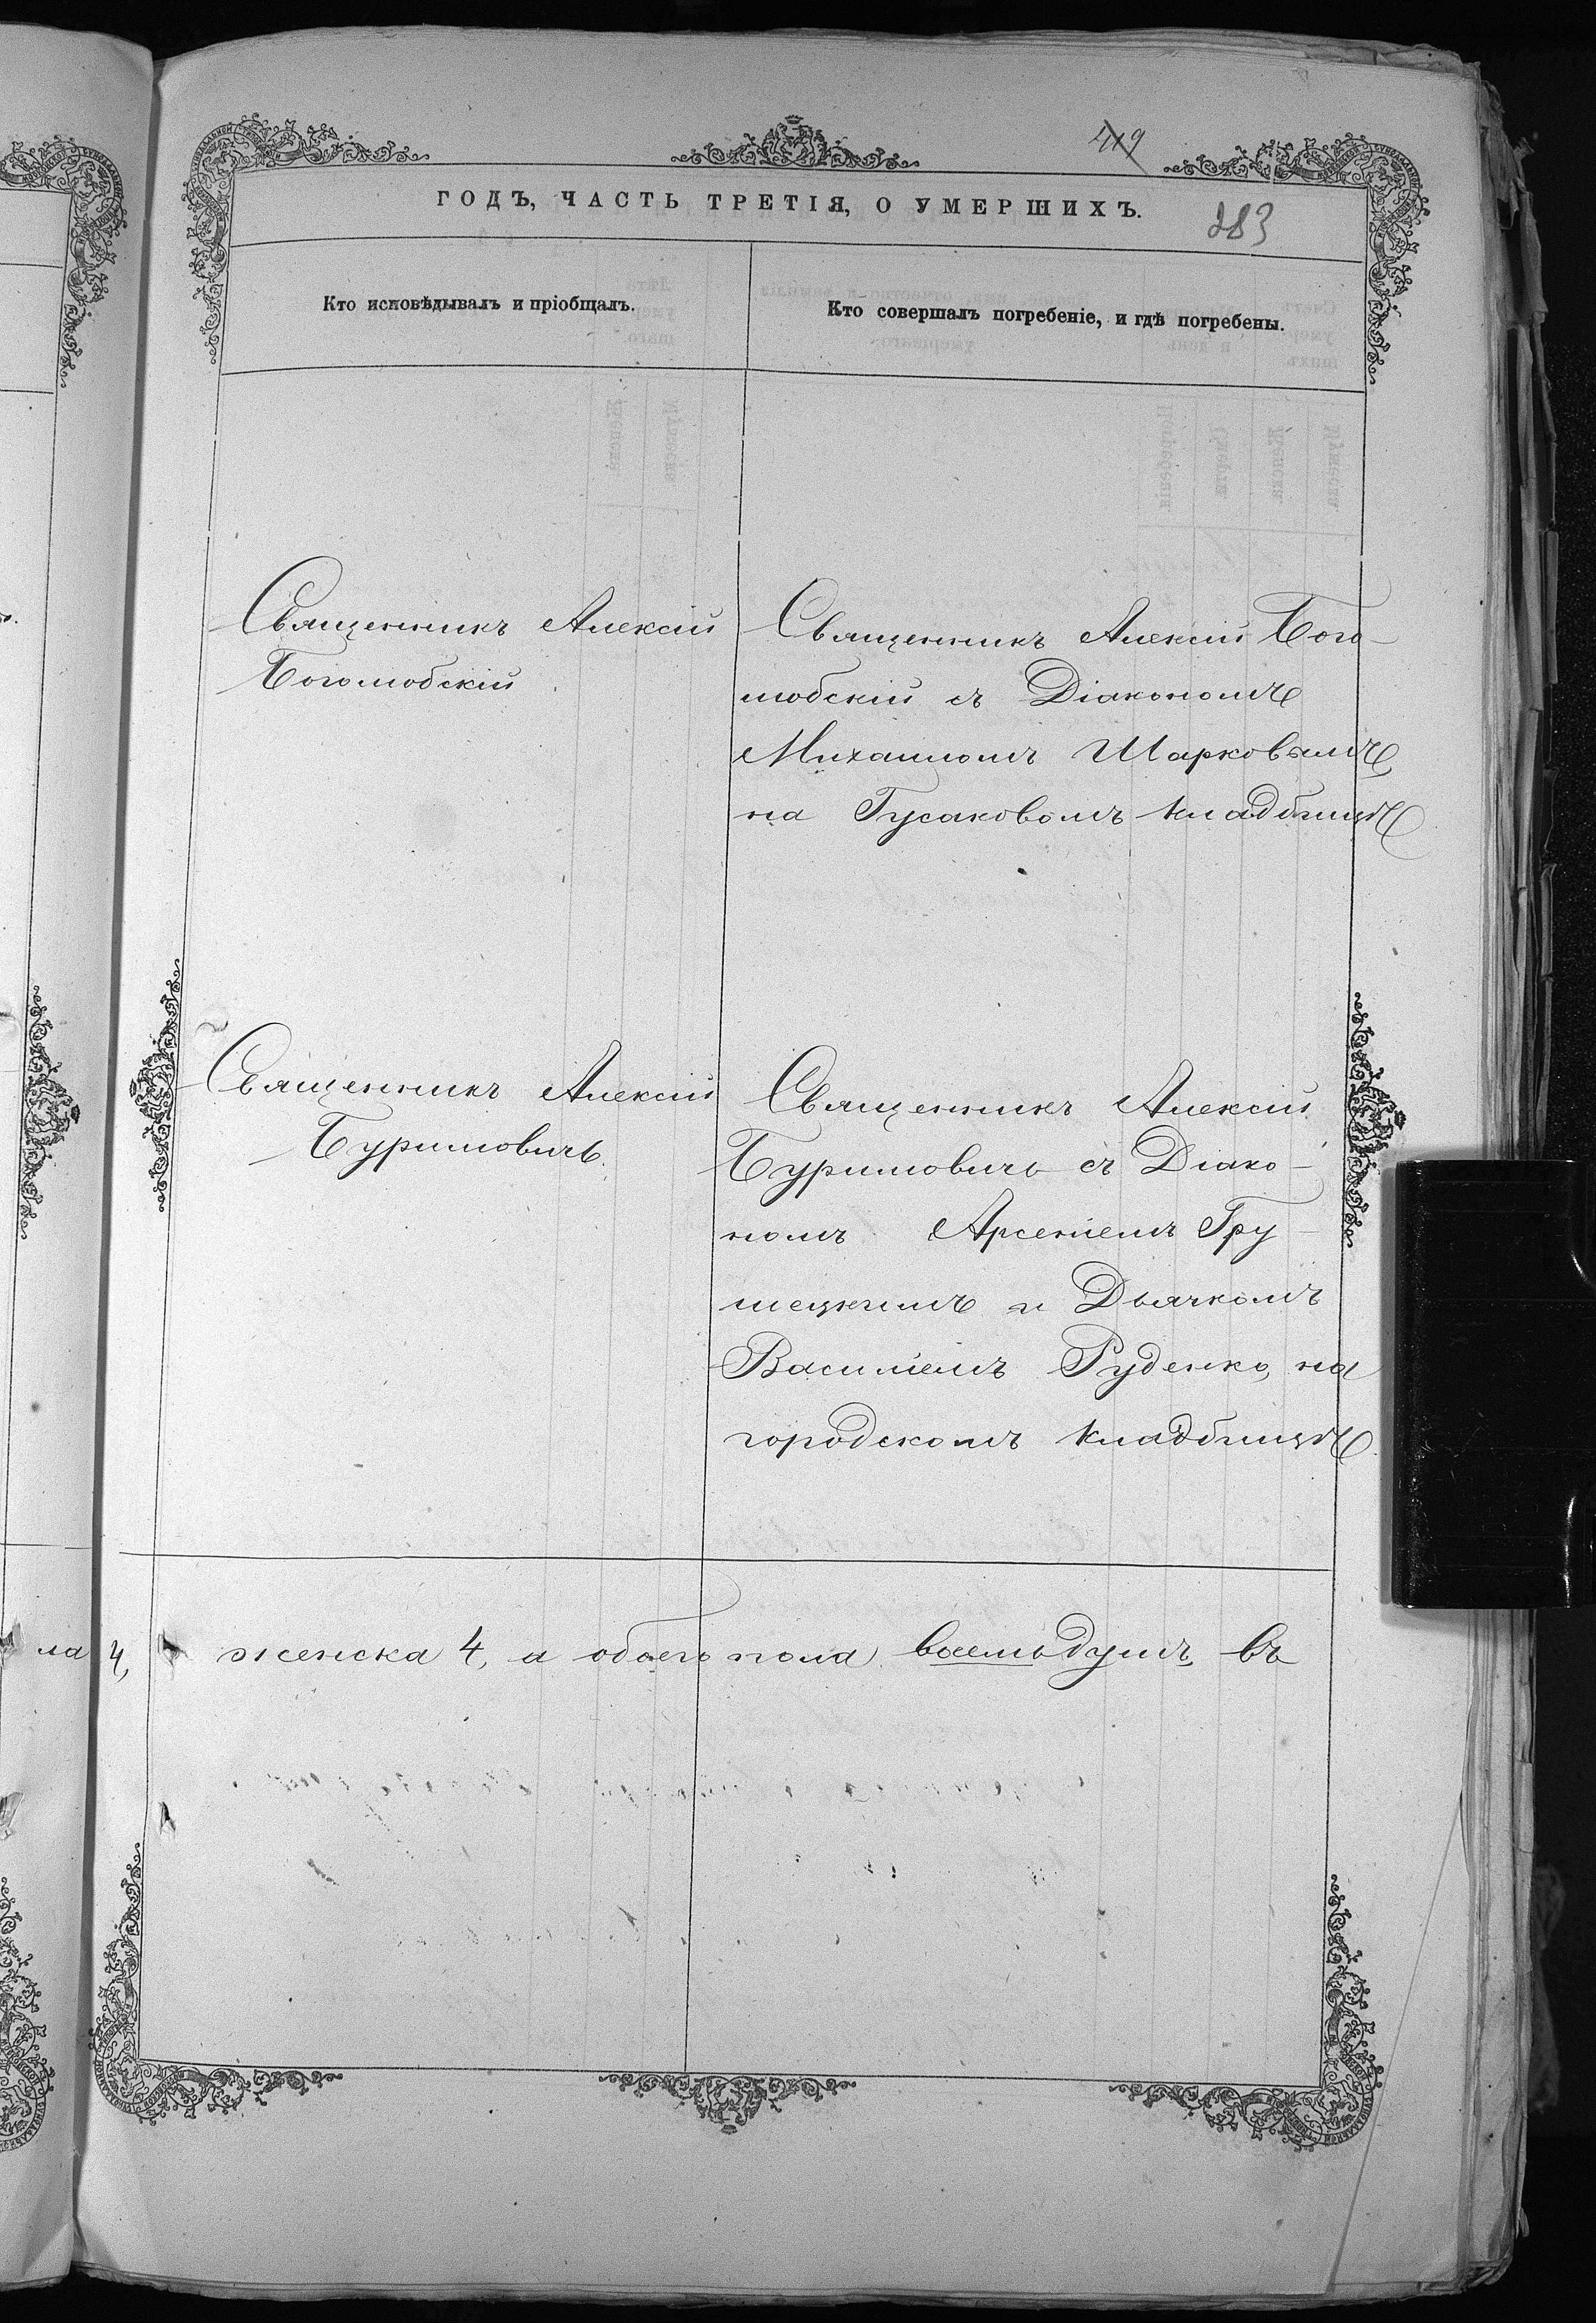 419
ГОДЪ, ЧАСТЬ ТРЕТІЯ, О УМЕРШИХЪ.
283
Кто исповѣдывалъ и пріобщалъ.
Кто совершалъ погребеніе, и гдѣ погребены.
Священникъ Алексій
Боголюбскій
Священникъ Алексій Бого-
любскій съ Діакономъ
Михаиломъ Шарковымъ
на Гусаковомъ кладбищѣ
Священникъ Алексій
Буримовичь
Священникъ Алексій
Буримовичь съ Діако-
номъ Арсеніемъ Гру-
шецкимъ и Дьячкомъ
Василіемъ Руденко, на
городскомъ кладбищѣ
ла 4, женска 4, а обоего пола восемь душъ въ